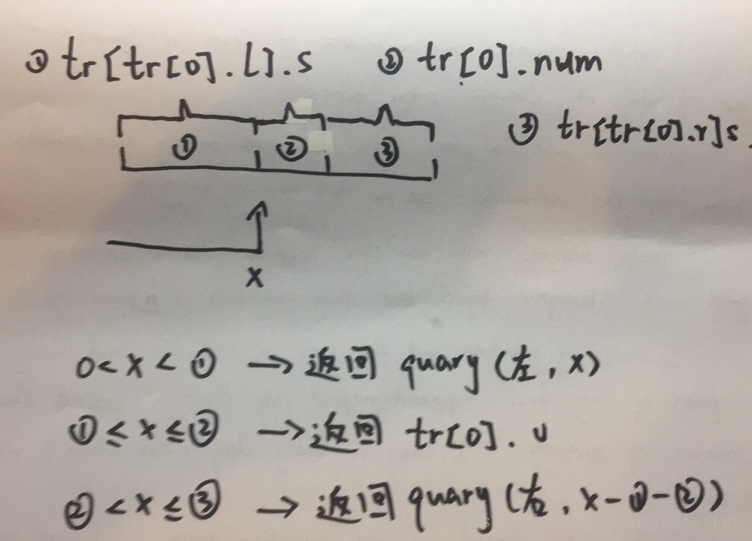 ① tr[tr[0].l].s ② tr[0].num
③ tr[tr[0].r]s.
① ② ③
x
0 < x < ① → 返回 quary (左, x)
① ≤ x ≤ ② → 返回 tr[0].v
② < x ≤ ③ → 返回 quary (右, x-①-②)